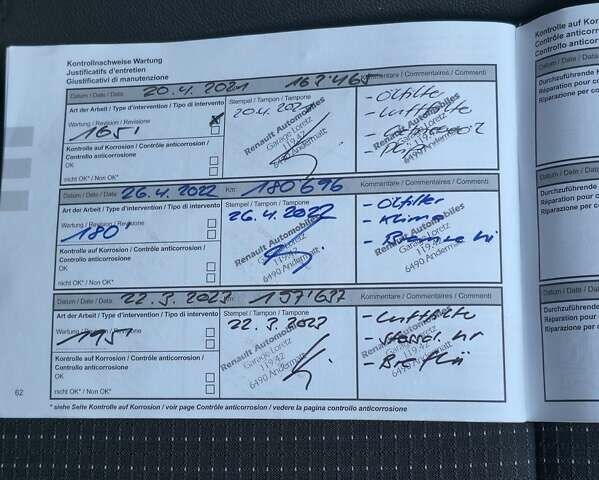 Kontrollnachweise Wartung
Justificatifs d'entretien
Giustificativi di manutenzione
Datum / Date / Data 20.4.2021
Kommentare / Commentaires / Commenti
Art der Arbeit / Type d'intervention / Tipo di intervento
Stempel / Tampon / Tampone
Wartung / Revision / Revisione
20.4.2021
Renault Automobiles
Garage Loretz
119.42
6490 Andermatt
- Ölfilter
- Luftfilter
Kontrolle auf Korrosion / Contrôle anticorrosion /
Controllo anticorrosione
OK
nicht OK* / Non OK*
Datum / Date / Data 26.4.2022 Km 180'696
Kommentare / Commentaires / Commenti
Art der Arbeit / Type d'intervention / Tipo di intervento
Stempel / Tampon / Tampone
Wartung / Revision / Revisione
180'
26.4.2022
Renault Automobiles
Garage Loretz
119.42
6490 Andermatt
- Ölfilter
- Klima
Kontrolle auf Korrosion / Contrôle anticorrosion /
Controllo anticorrosione
OK
nicht OK* / Non OK*
Datum / Date / Data 22.3.2023 Km 197'637
Kommentare / Commentaires / Commenti
Art der Arbeit / Type d'intervention / Tipo di intervento
Stempel / Tampon / Tampone
Wartung / Revision / Revisione
195'
22.3.2023
Renault Automobiles
Garage Loretz
119.42
6490 Andermatt
- Luftfilter
Kontrolle auf Korrosion / Contrôle anticorrosion /
Controllo anticorrosione
OK
nicht OK* / Non OK*
62
* siehe Seite Kontrolle auf Korrosion / voir page Contrôle anticorrosion / vedere la pagina controllo anticorrosione
Kontrolle auf Korr
Contrôle anticorr
Controllo anticorr
Durchzuführende
Réparation pour c
Riparazione per co
Durchzuführende
Réparation pour c
Riparazione per co
Durchzuführende
Réparation pour c
Riparazione per co